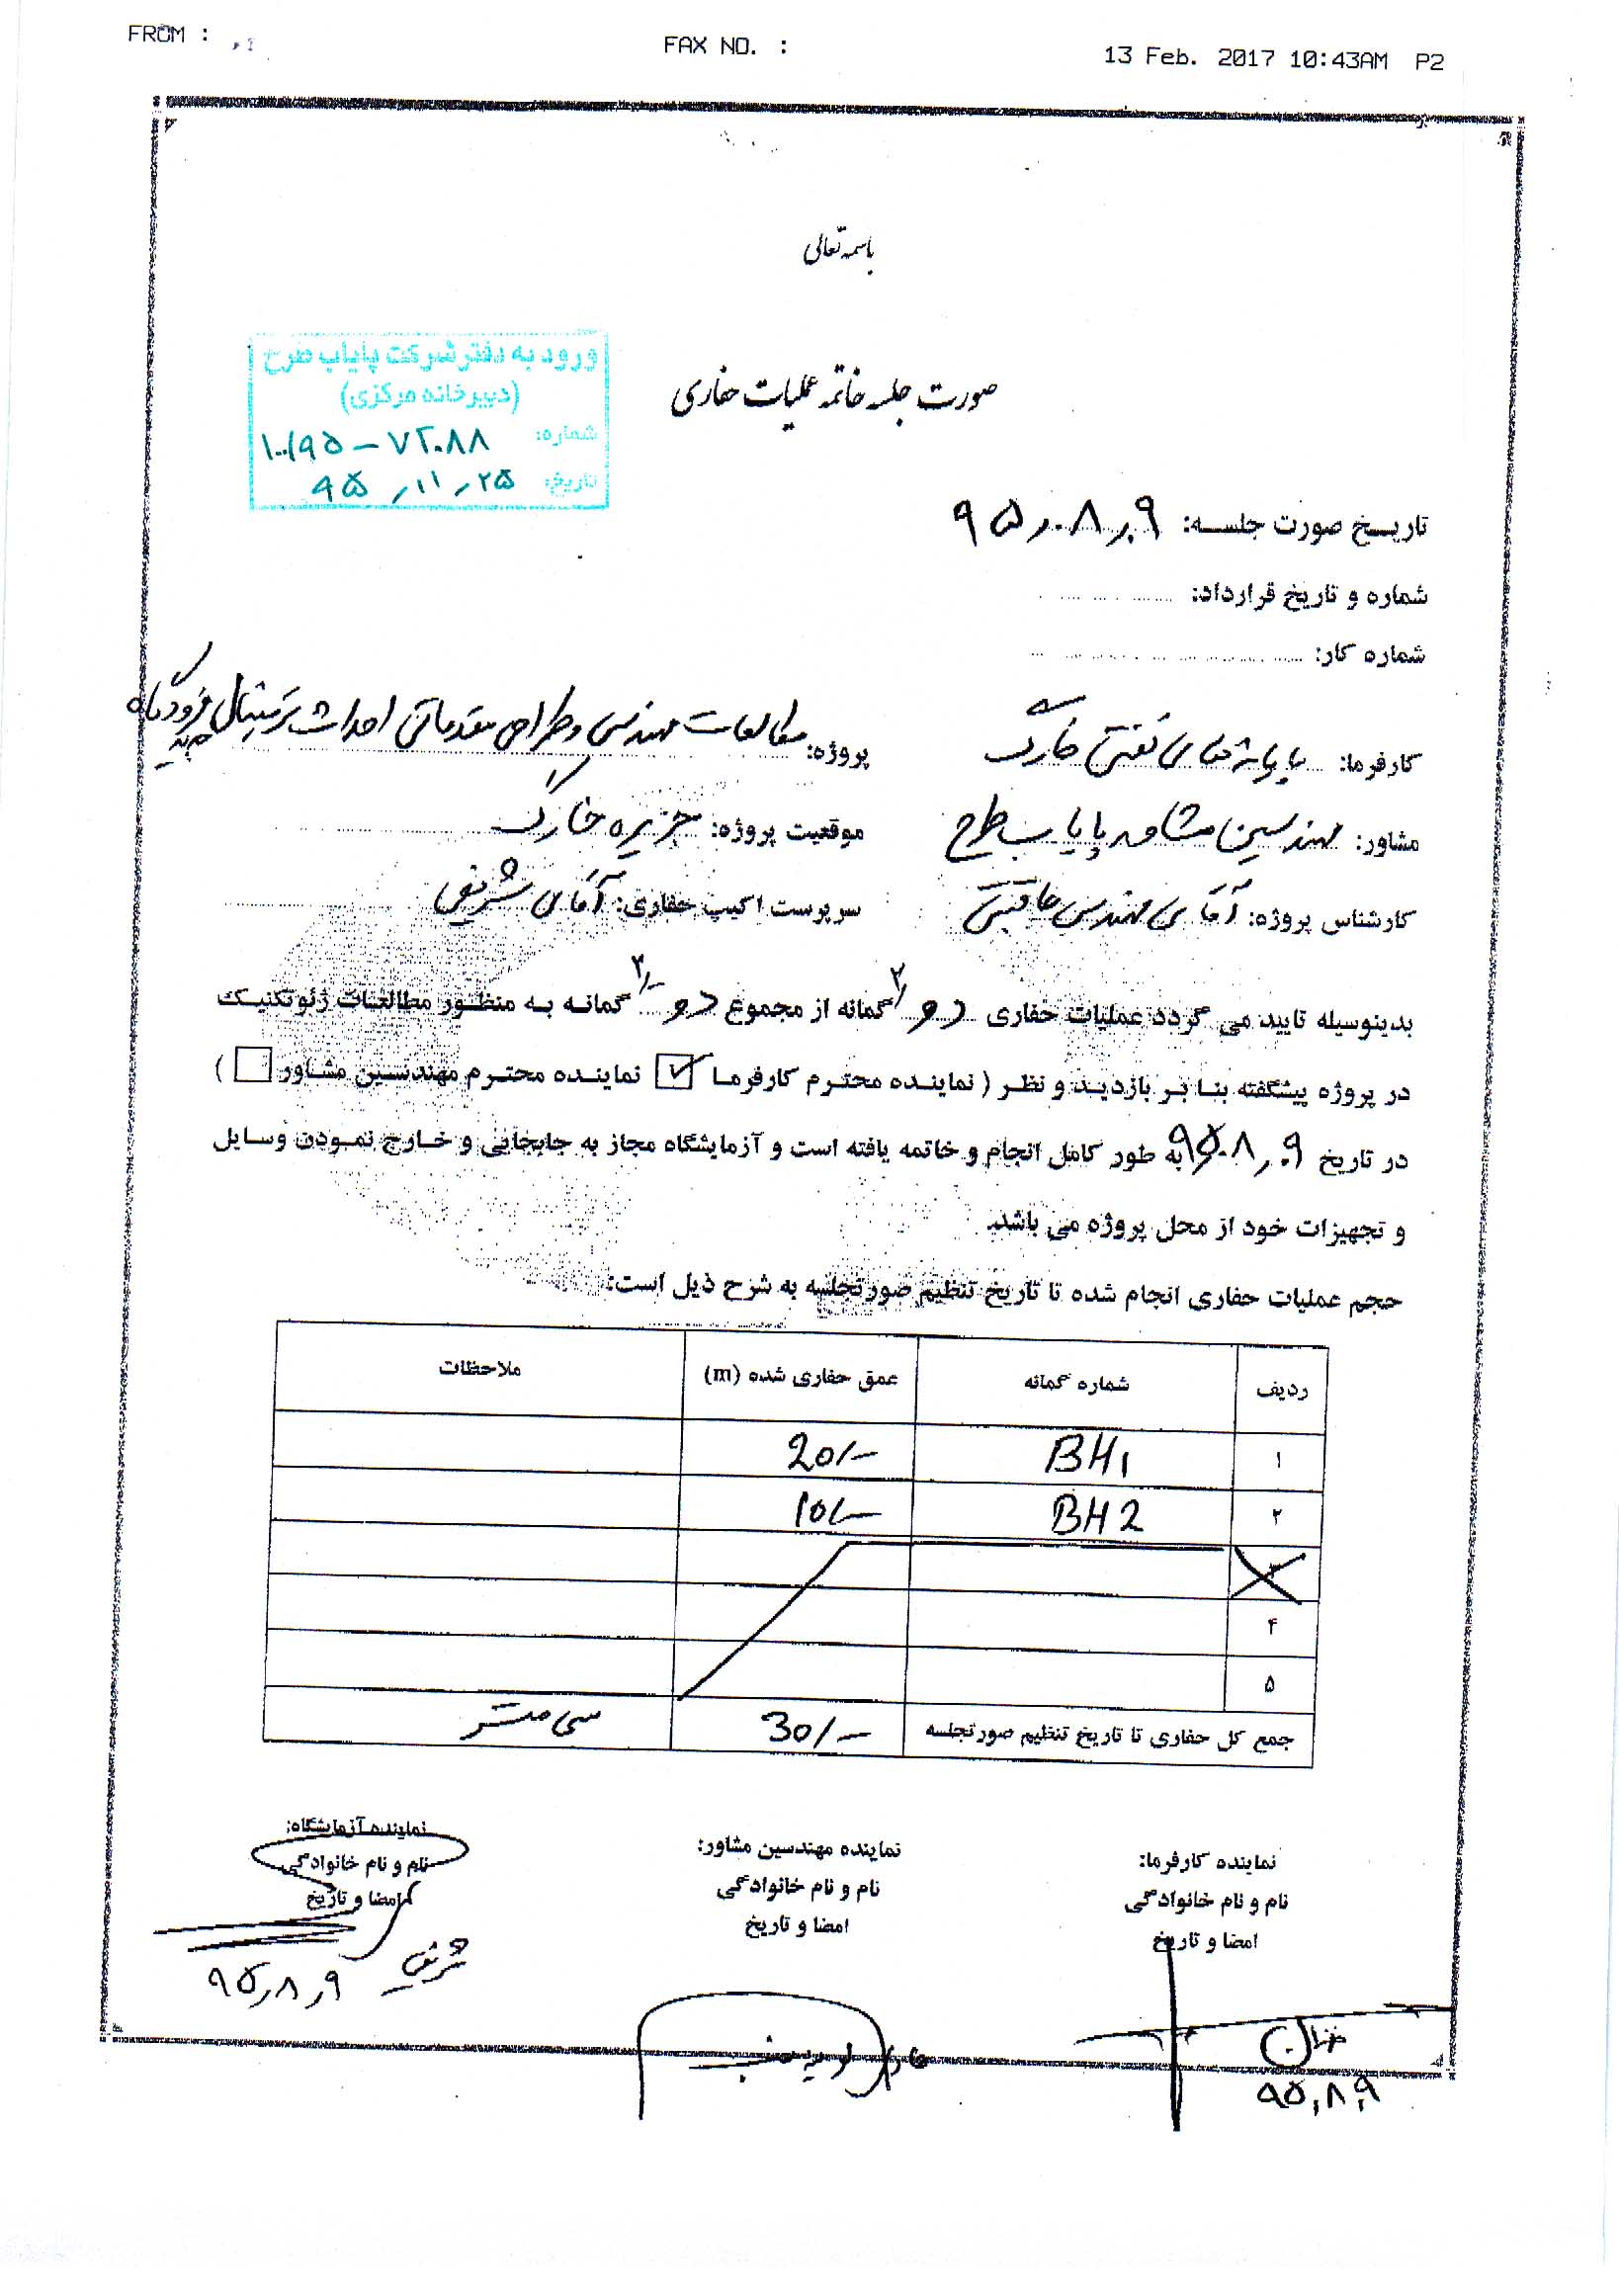 FROM :
FAX NO. :
13 Feb. 2017 10:43AM P2
باسمه تعالی
ورود به دفتر شرکت پایاب طرح
(دبیرخانه مرکزی)
شماره: ۱۰۰/۹۵ – ۷۲۰۸۸
تاریخ: ۹۵/۱۱/۲۵
صورت جلسه خاتمه عملیات حفاری
تاریـخ صورت جلسـه: ۹۵/۰۸/۰۹
شماره و تاریخ قرارداد:
شماره کار:
کارفرما: پایانه های نفتی خارگ
پروژه: مطالعات مهندسی و طراحی مقدماتی احداث ترمینال فرودگاه جدید
مشاور: مهندسین مشاور پایاب طرح
موقعیت پروژه: جزیره خارگ
کارشناس پروژه: آقای مهندس
سرپرست اکیپ حفاری: آقای شریفی
بدینوسیله تایید می گردد عملیات حفاری دو ۲/ گمانه از مجموع دو ۲/- گمانه به منظور مطالعات ژئوتکنیک
در پروژه پیشگفته بنا بر بازدید و نظر ( نماینده محترم کارفرما ✓ نماینده محترم مهندسین مشاور )
در تاریخ ۹۵/۰۸/۰۹ به طور کامل انجام و خاتمه یافته است و آزمایشگاه مجاز به جابجایی و خارج نمودن وسایل
و تجهیزات خود از محل پروژه می باشد.
حجم عملیات حفاری انجام شده تا تاریخ تنظیم صورتجلسه به شرح ذیل است:
ردیف شماره گمانه عمق حفاری شده (m) ملاحظات
۱ BH1 20/-
۲ BH2 10/-
۳
۴
۵
جمع کل حفاری تا تاریخ تنظیم صورتجلسه 30/- سی متر
نماینده کارفرما:
نام و نام خانوادگی
امضا و تاریخ
۹۵/۸/۹
نماینده مهندسین مشاور:
نام و نام خانوادگی
امضا و تاریخ
نماینده آزمایشگاه:
نام و نام خانوادگی
امضا و تاریخ
شریفی
۹۵/۸/۹